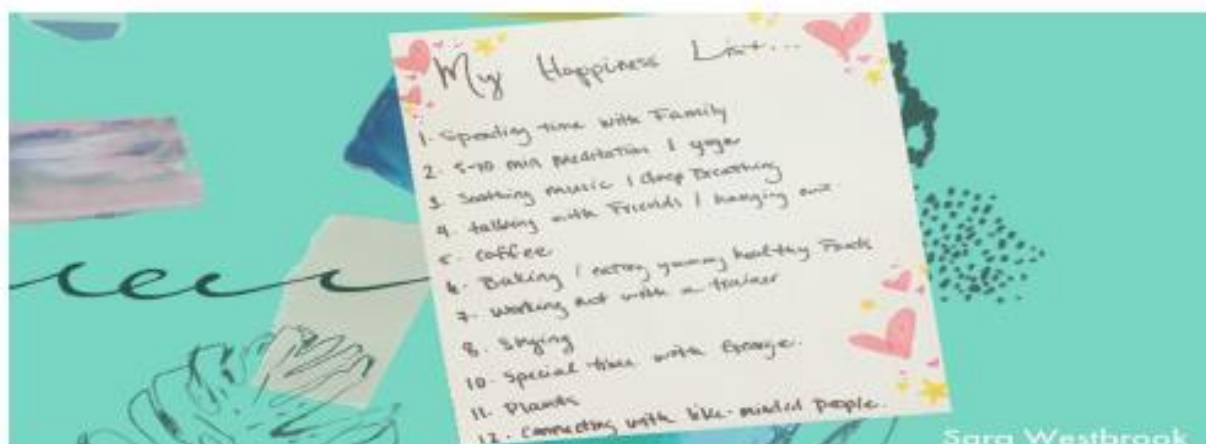 My Happiness List...
1. Spending time with Family
2. 5-10 min meditation / yoga
3. Soothing music / deep Breathing
4. talking with Friends / hanging out.
5. coffee
6. Baking / eating yummy healthy Foods
7. working out with a trainer
8. Singing
10. Special time with George.
11. Plants
12. Connecting with like-minded People.
Sara Westbrook